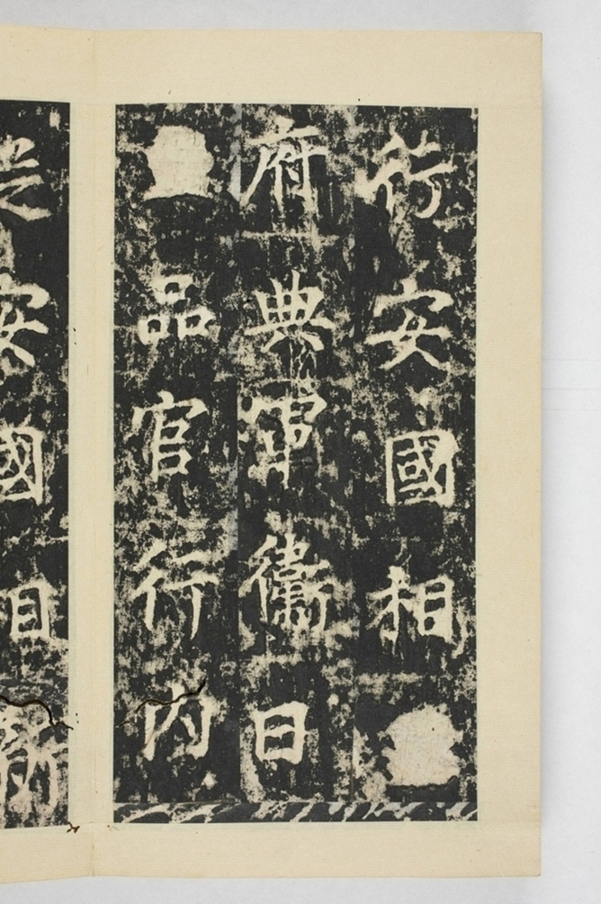 行安國相
府典軍衛日
品官行内
安國相